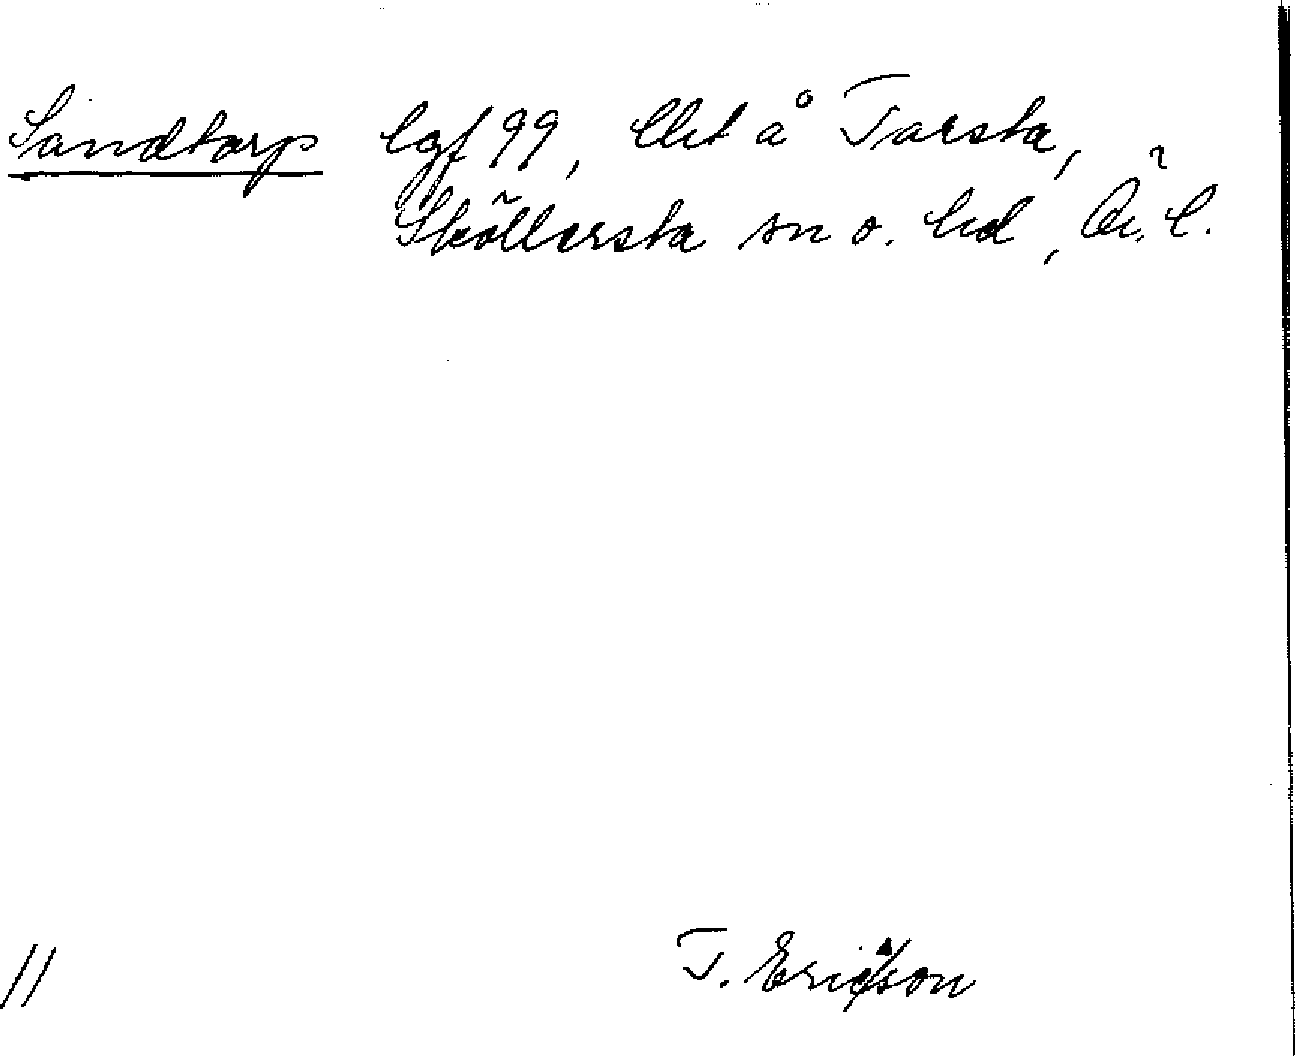 Sandtorp lgf 99, lht å Tarsta,
Sköllersta sn o. hd, Ör. l.
T. Ericson